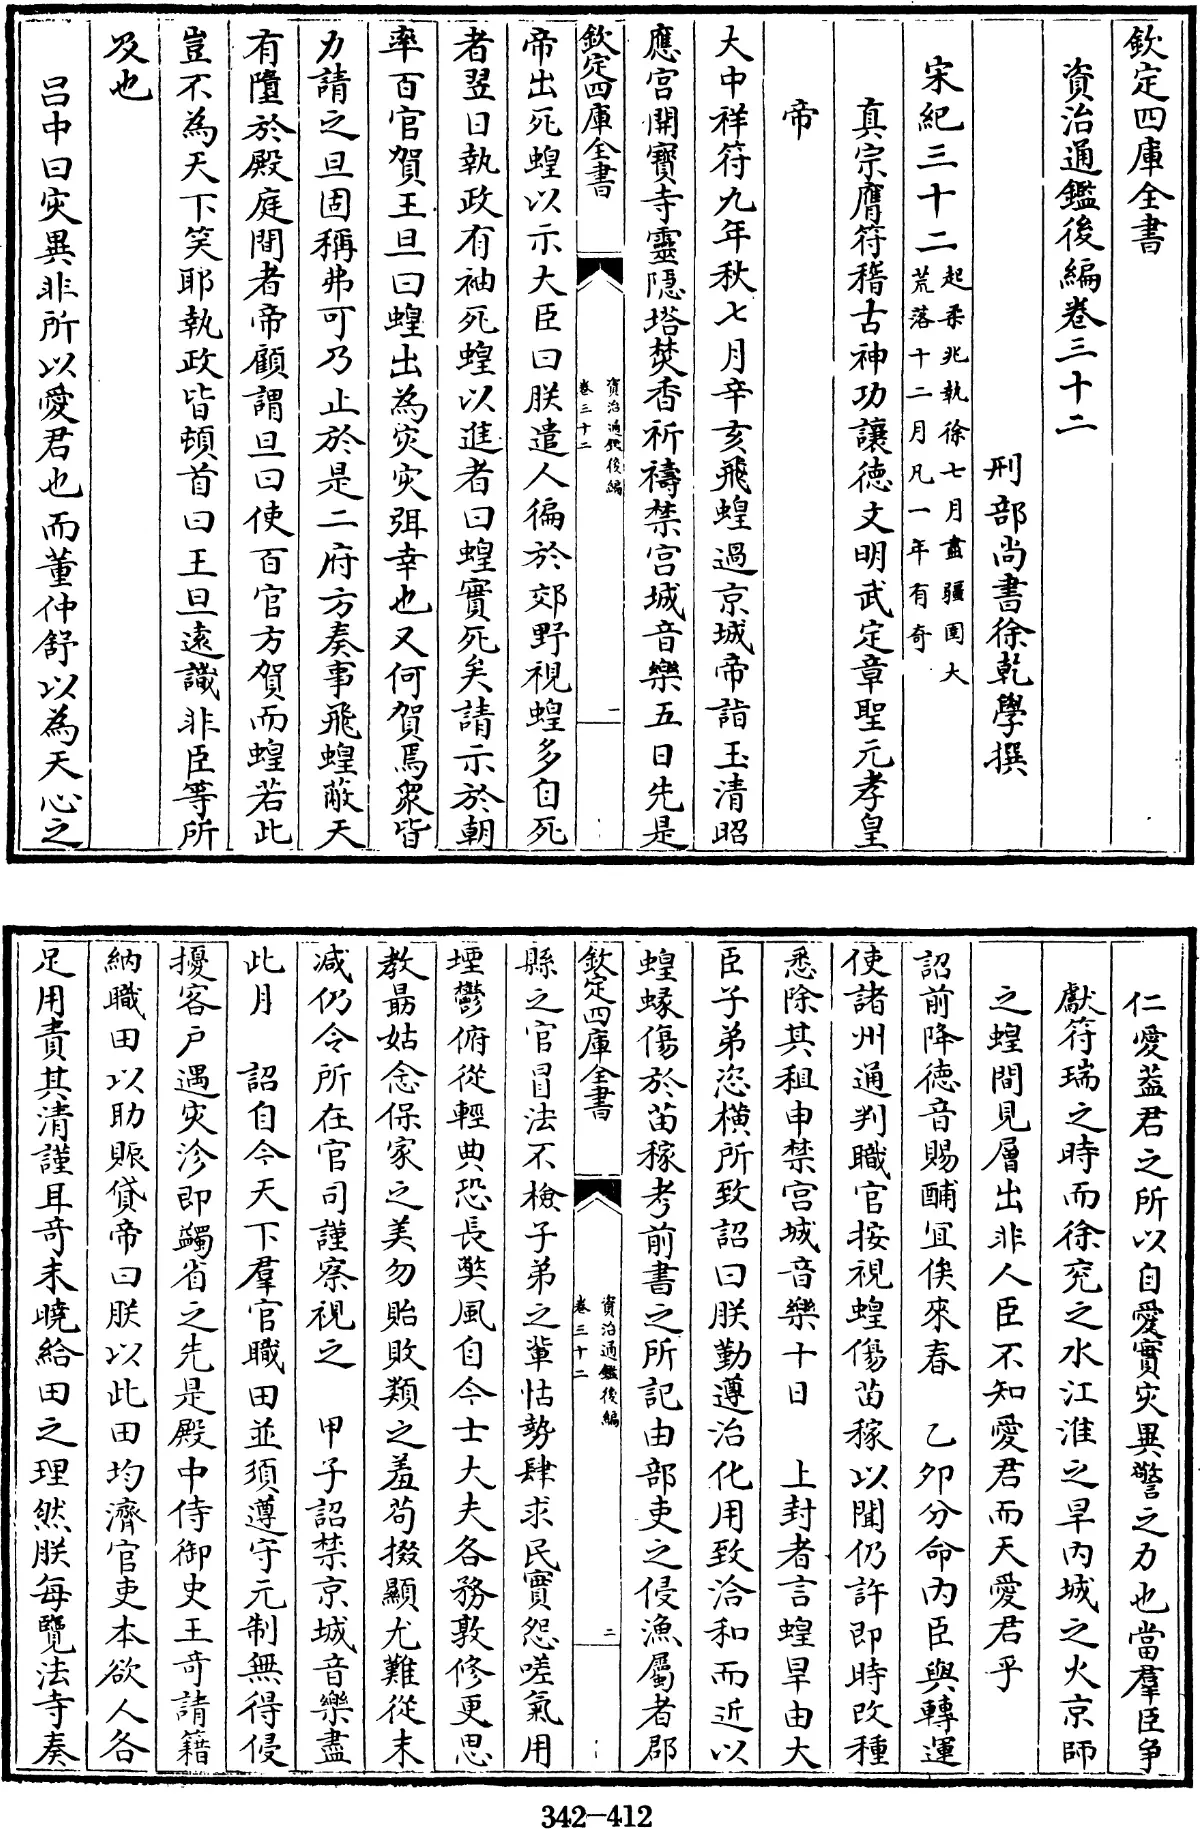 欽定四庫全書
資治通鑑後編卷三十二
刑部尚書徐乾學撰
宋紀三十二起柔兆執徐七月盡疆圉大荒落十二月凡一年有奇
真宗膺符稽古神功讓德文明武定章聖元孝皇
帝
大中祥符九年秋七月辛亥飛蝗過京城帝詣玉清昭
應宮開寶寺靈隠塔焚香祈禱禁宮城音樂五日先是
欽定四庫全書
資治通鑑後編
卷三十二
一
帝出死蝗以示大臣曰朕遣人徧於郊野視蝗多自死
者翌日執政有袖死蝗以進者曰蝗實死矣請示於朝
率百官賀王旦曰蝗出為灾灾弭幸也又何賀焉衆皆
力請之旦固稱弗可乃止於是二府方奏事飛蝗蔽天
有墮於殿庭間者帝顧謂旦曰使百官方賀而蝗若此
豈不為天下笑耶執政皆頓首曰王旦遠識非臣等所
及也
呂中曰灾異非所以愛君也而董仲舒以為天心之
仁愛葢君之所以自愛實灾異警之力也當羣臣争
獻符瑞之時而徐兖之水江淮之旱内城之火京師
之蝗間見層出非人臣不知愛君而天愛君乎
詔前降德音賜酺宜俟來春　乙夘分命内臣與轉運
使諸州通判職官按視蝗傷苗稼以聞仍許即時改種
悉除其租申禁宮城音樂十日　上封者言蝗旱由大
臣子弟恣横所致詔曰朕勤遵治化用致洽和而近以
蝗蝝傷於苗稼考前書之所記由部吏之侵漁屬者郡
欽定四庫全書
資治通鑑後編
卷三十二
二
縣之官冒法不檢子弟之輩怙勢肆求民實怨嗟氣用
堙鬱俯從輕典恐長獘風自今士大夫各務敦修更思
教朂姑念保家之美勿貽敗類之羞茍掇顯尤難從末
减仍令所在官司謹察視之　甲子詔禁京城音樂盡
此月　詔自今天下羣官職田並須遵守元制無得侵
擾客戶遇灾沴即蠲省之先是殿中侍御史王奇請籍
納職田以助賑貸帝曰朕以此田均濟官吏本欲人各
足用責其清謹耳奇未曉給田之理然朕每覽法寺奏
342-412